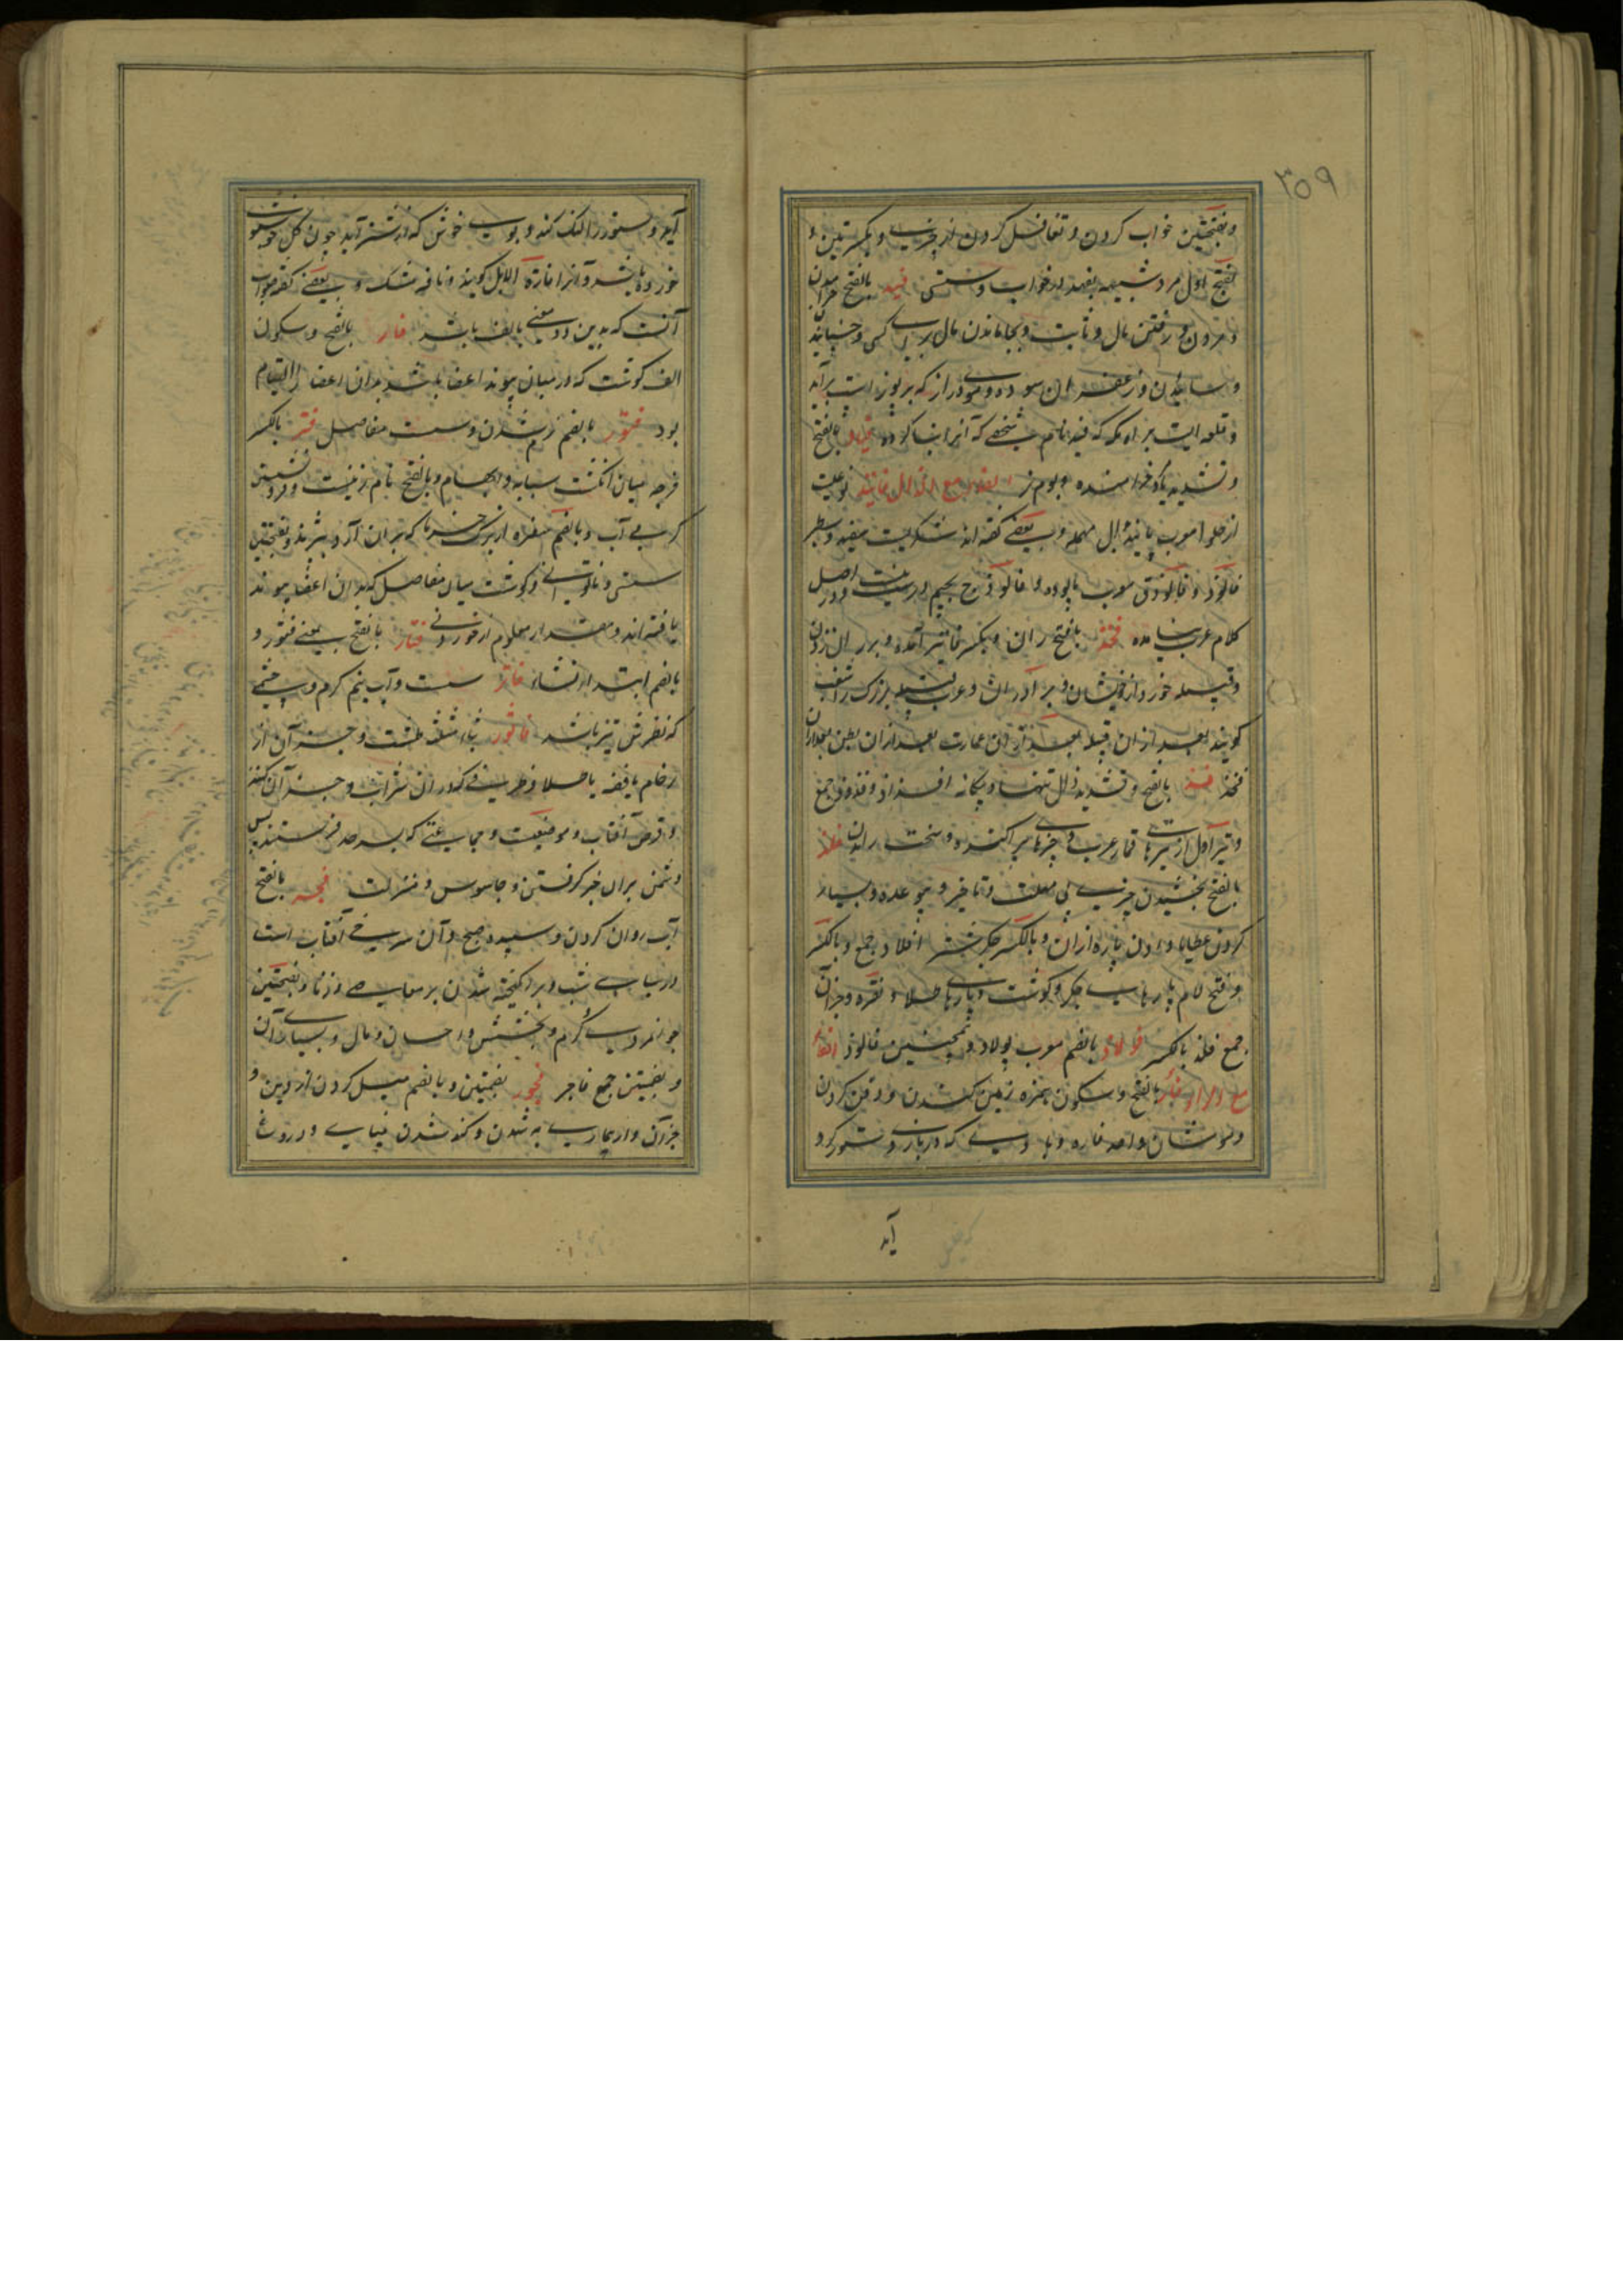 ۳۵۹
وبفتحتین خواب کردن و تغافل کردن از چیزی و بکسرتین و
بفتح اول مرد شبیه بفهد در خواب و سستی فید بالفتح خرامیدن
و مردن و رفتن مال و ثابت و بجا ماندن مال برای کسی و جنبانیدن
و ساییدن زعفران سوده و موی دراز که بر پوز اسب برآید
و قلعه ایست براه مکه که فید نام شخصی که آنرا بنا کرده فیاد بالفتح
و تشدید یا خرامنده و بوم نر الفاء مع الذال فانیذ نوعیست
از حلوا معرب پانید بدال مهمله و بعضی گفته اند شکریست سفید و سطبر
فالوذ و فالوذق معرب پالوده و فالوذج بجیم درست نیست و در اصل
کلام عرب نیامده فخذ بالفتح ران و بکسر خا نیز آمده و بر ران زدن
و قبیله خورد از خویشان و برادران و عرب قبیله بزرگ را شعب
گویند بعد ازان قبیله بعد ازان عمارت بعد ازان بطن بعد ازان
فخذ فذ بالفتح و تشدید ذال تنها و یگانه افذاذ و فذوذ جمع
و تیر اول از تیرهای قمار عرب و چیزهای پراکنده و سخت راندن فلذ
بالفتح بخشیدن چیزی بی مهلت و تاخیر و بی وعده و بسیار
کردن عطایا و دادن پاره ازان و بالکسر جگر شتر افلاذ جمع و بالکسر
و فتح لام پارهای جگر و گوشت و پارهای طلا و نقره و جزآن
جمع فلذ بالکسر فولاذ بالضم معرب پولاد و همچنین فالوذ الفاء
مع الراء فأر بالفتح و سکون همزه زمین کندن و دفن کردن
و موشان واحد فاره و بادی که در بازوی ستور گرد
آید
آید و ستور را لنگ کند و بوی خوش که از شتر آید چون گل خوشبوی
خورده باشد و آنرا فارة الابل گویند و نافه مشک و بعضی گفته صواب
آنست که بدین دو معنی بالف باشد فار بالفتح و سکون
الف گوشت که در میان پیوند اعضا باشد بدان اعضا را التیام
بود فتور بالضم نرم شدن و سست مفاصل فتر بالکسر
فرجه میان انگشت سبابه و ابهام و بالفتح نام زنیست و فرو نشستن
گرمی آب و بالضم سفره از برگ خرما که بران آرد بیزند و بفتحتین
سستی و ناتوانی و گوشت میان مفاصل که بدان اعضا پیوند
یافته اند و مقدار معلوم از خوردنی فتار بالفتح بمعنی فتور و
بالضم ابتداء نشاء فاتر سست و آب نیم گرم و چشمی
که نظرش تیز نباشد فاثور بثاء مثلثه طشت و جزآن از
رخام یا نقره یا طلا و ظرفی که دران شراب و جزآن کنند
و قرص آفتاب و موضعیست و جماعتی که بسرحد فرستند پس
دشمن برای خبر گرفتن و جاسوس و منزلت فجر بالفتح
آب روان کردن و سپیده صبح و آن سرخی آفتاب است
در سیاهی شب و برانگیخته شدن بر معاصی و زنا و بفتحتین
جوانمردی و کرم و بخشش و احسان و مال و بسیاری آن
و بضمتین جمع فاجر فجور بضمتین و بالضم میل کردن از دین و
جزآن و از بیماری به شدن و کند شدن بینایی و دروغ